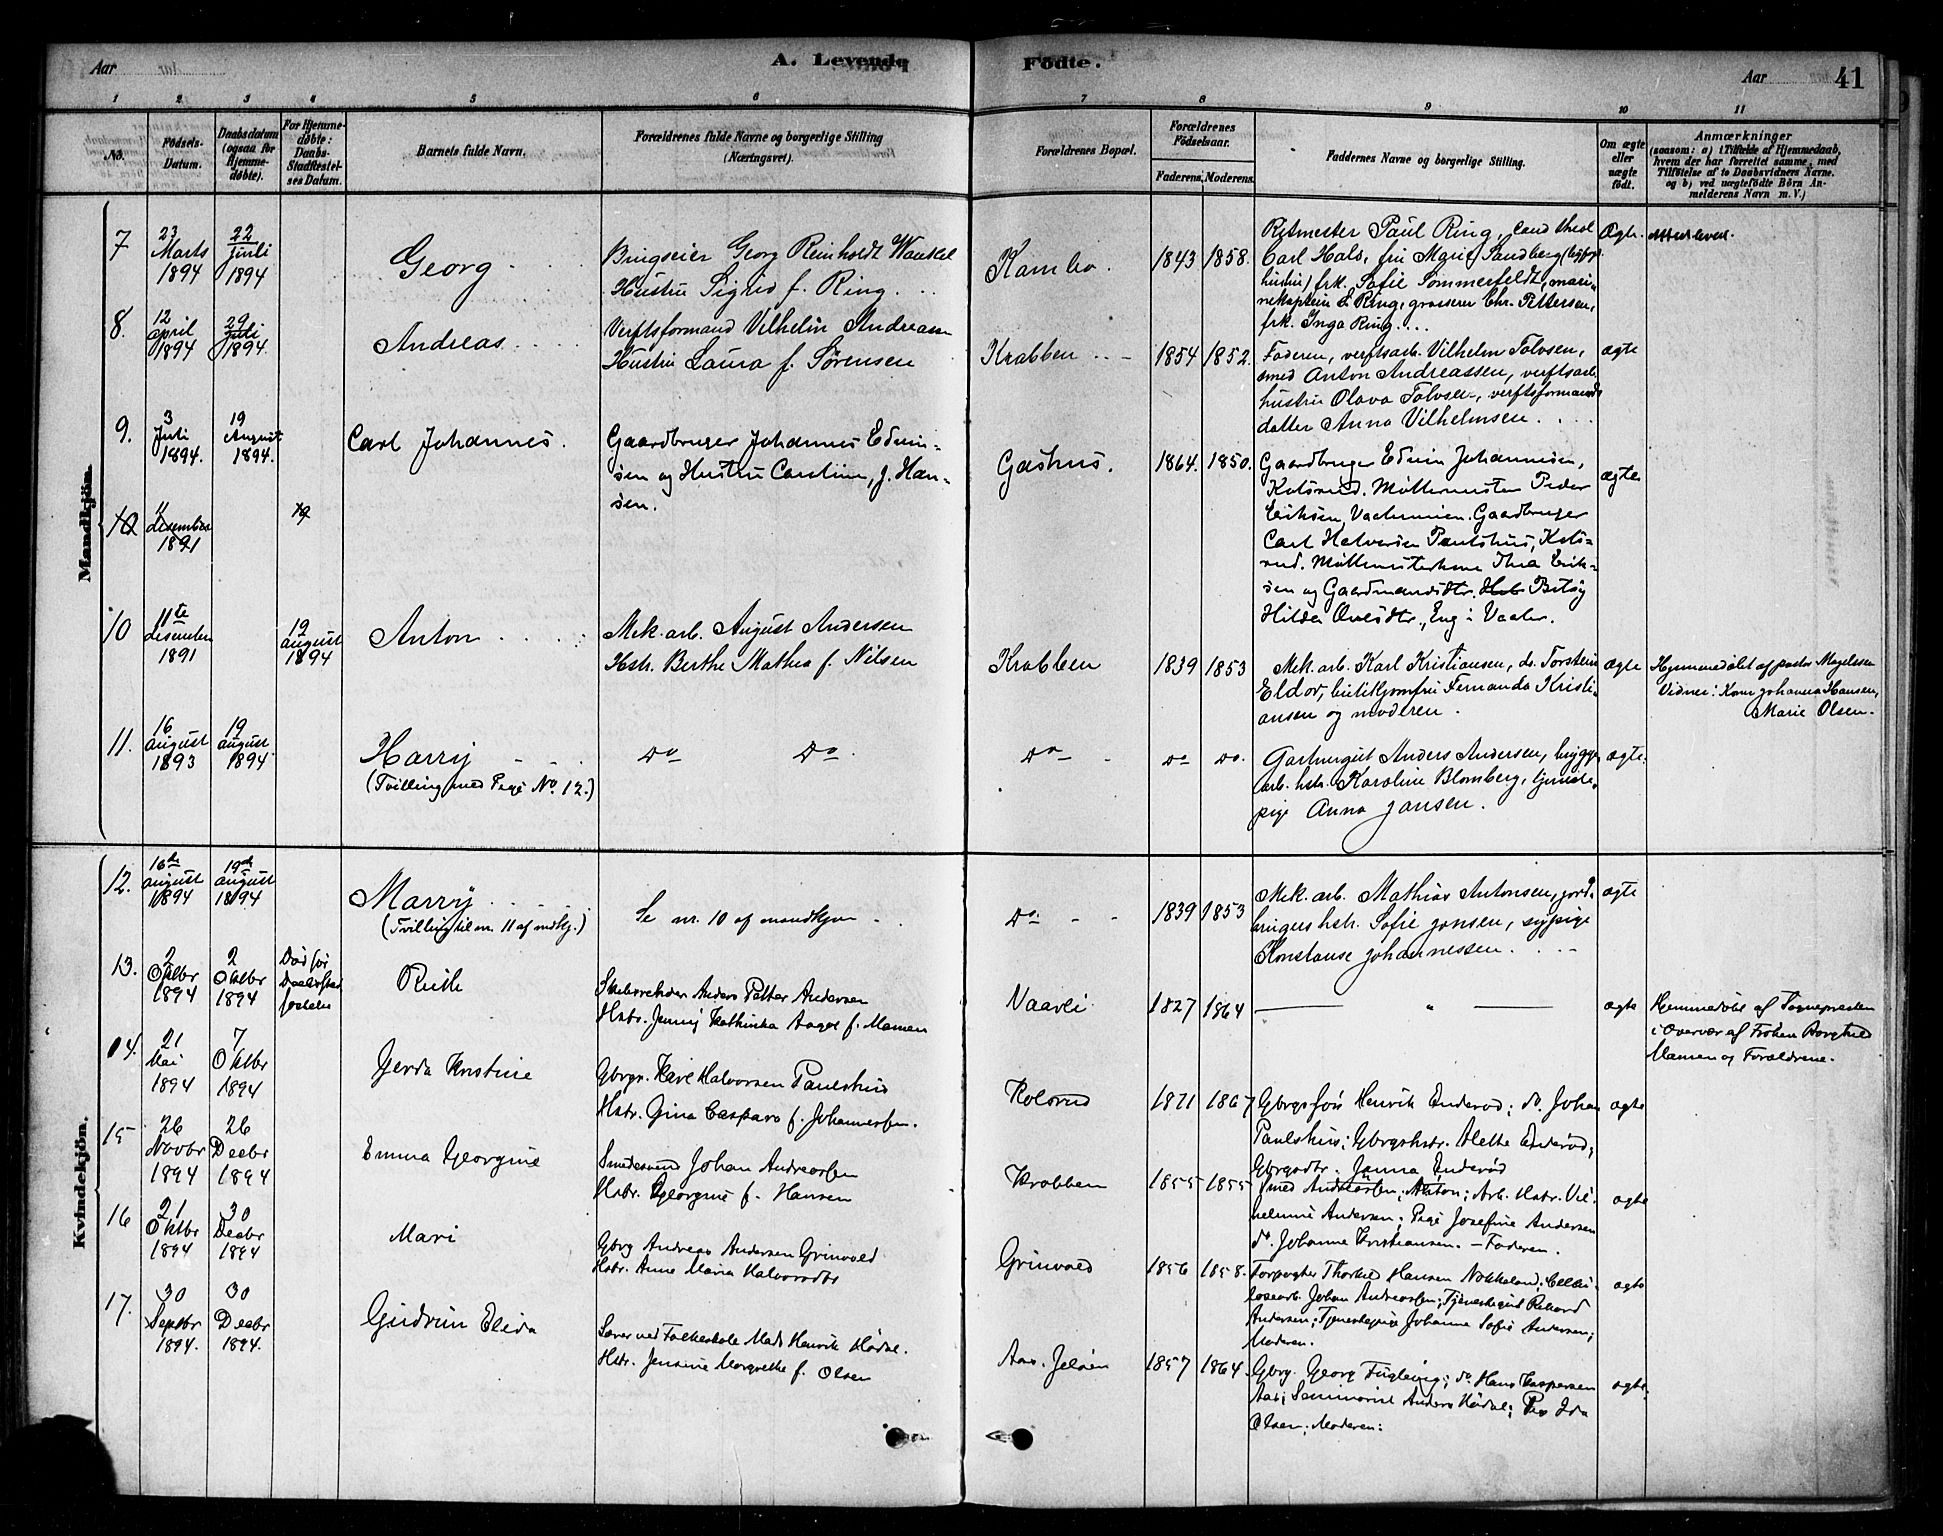 Aar
A. Levende Födte.
Aar
41
1 2 3 4 5 6 7 8 9 10 11
No.
Födsels-Datum.
Daabsdatum (ogsaa for Hjemme-döbte).
For Hjemme-döbte: Daabs-Stadfæstel-ses Datum.
Barnets fulde Navn.
Forældrenes fulde Navne og borgerlige Stilling (Næringsvei).
Forældrenes Bopæl.
Forældrenes Födselsaar.
Faderens. Moderens.
Faddernes Navne og borgerlige Stilling.
Om ægte eller uægte födt.
Anmærkninger
(saasom: a) i Tilfælde af Hjemmedaab,
hvem der har forrettet samme, med
Tilföielse af to Daabsvidners Navne.
og b) ved uægtefödte Börn An-
melderens Navn m. V.)
Mandkjön.
7 23 Marts 1894
22 Juli 1894
Georg
Brugseier Georg Reinholdt Wankel
Hustru Sigrid f. Ring.
Kambo.
1843 1858.
Ritmester Paul Ring, cand theol
Carl Hals, fru Marie Sandberg
frk. Sofie Sommerfeldt, mari-
nekaptein E Ring, grosserer Chr. Pettersen,
frk. Inga Ring.
Ægte.
8. 12 april 1894
29 Juli 1894
Andreas
Verftsformand Vilhelm Andreasen
Hustru Laura f. Sørensen
Krabben
1854 1852.
Faderen, verftsarb. Vilhelm Tolvsen,
smed Anton Andreassen, verftsarb.
hustru Olava Tolvsen, verftsformands
datter Anna Vilhelmsen
ægte
9. 3 Juli 1894.
19 August 1894.
Carl Johannes.
Gaardbruger Johannes Edvin-
sen og Hustru Caroline, f. Han-
sen.
Gashus.
1864. 1850.
Gaardbruger Edvin Johannesen,
Kolsrud. Møllermester Peder
Eriksen, Gaardbruger
Carl Halversen Paulshus, Kols-
rud. Møllermesterkone Thea Erik-
sen og Gaardmandsdtr.
Hilda Olesdtr., Eng i Vaaler.
ægte
10 11 desember 1891
19
10 11te desember 1891
19 august 1894
Anton
Mek. arb. August Andersen
Hstr. Berthe Mathea f. Nilsen
Krabben
1839 1853
Mek. arb. Karl Kristiansen, do. Torstein
Eldor, butikjomfru Fernanda Kristi-
ansen og moderen.
ægte
Hjemmedøbt af pastor Magelssen
Vidner: Kone Johanna Hansen,
Marie Olsen.
11. 16 august 1893
19 august 1894
Harry
(Tvilling med Pige No. 12.)
Do Do
Do
Do Do.
Garhungut Anders Andersen, brygge-
arb. hstr. Karoline Blomberg, tjeneste-
pige Anna Jansen.
ægte.
Kvindekjön.
12. 16de august 1894
19de august 1894
Marry
(Tvilling til nr. 11 af mdkj.)
Se nr. 10 af mandkjøn
Do.
1839 1853
Mek. arb. Mathias Antonsen, jord-
brugers hstr. Sofie Jonsen, sypige
Konstanse Johannessen.
ægte
13. 2 Oktbr 1894
2 Oktbr 1894
Død før
Ruth
Anders Petter Andersen
Hstr. Jenny Kathinka Aagot f. Mamen
Vaarli
1827 1864
— " —
ægte
Hjemmedøbt af Sognepresten
i Overvær af Frøken Borghild
Mamen og Forældrene.
14. 21 Mai 1894
7 Oktbr 1894
Gerda Kristine
Gbrgr. Karl Halvorsen Paulshus
Hstr. Gina Caspara f. Johannessen.
Kolsrud
1871 1867
Henrik Enderød; do. Johan
Paulshus; Gbrgshstr. Alette Enderød;
Gbrgsdtr. Janna Enderød
ægte
15 26 Novbr 1894
26 Decbr 1894
Emma Georgine
Smedesvend Johan Andreassen
Hstr. Georgine f. Hansen
Krabben
1855 1855
Smed Andreassen, Anton; Arb. Hstr. Vil-
helmine Andersen; Pige Josefine Andersen
do. Johanne Kristiansen. – Faderen.
ægte
16 21 Oktbr 1894
30 Decbr 1894
Mari
Gbrg Andreas Andersen Grinvold
Hstr. Anne Maria Halvorsdtr
Grinvold
1856 1858.
Thorkild Hansen Nokkeland; Cellu-
losearb. Johan Andreassen; Tjenestegut Rikard
Andersen; Tjenestepige Johanne Sofie Andersen;
Moderen.
ægte
17. 30 Septbr 1894.
30 Decbr 1894.
Gudrun Elida
Lærer ved Folkeskole Mads Henrik Hødal.
Hstr. Jensine Margrethe f. Olsen
Aas. Jeløen
1857 1864.
Gbrg. Georg Fuglevig; do Hans Kaspersen
Aas; Seminarist Anders Hødal; Pige Ida
Olsen; Moderen.
ægte.